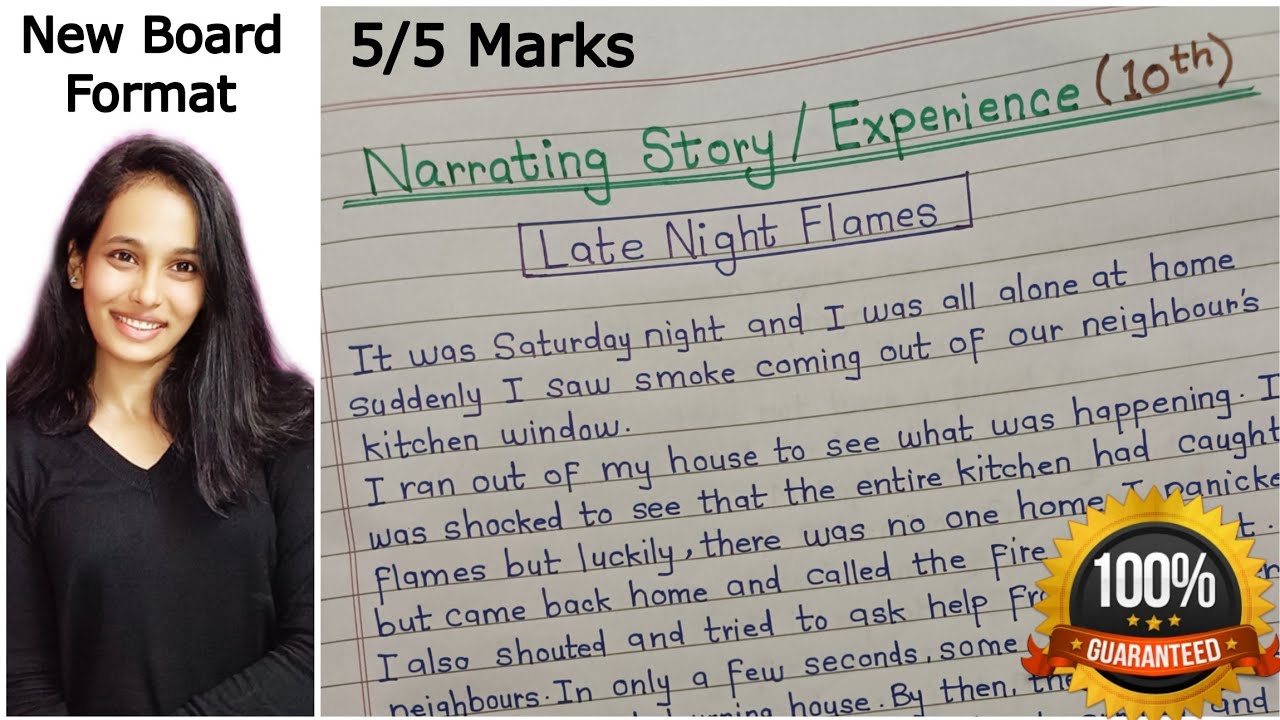 New Board
Format
5/5 Marks
Narrating Story / Experience (10th)
Late Night Flames
It was Saturday night and I was all alone at home
suddenly I saw smoke coming out of our neighbour's
kitchen window.
I ran out of my house to see what was happening. I
was shocked to see that the entire kitchen had caught
flames but luckily, there was no one home I panicke
but came back home and called the fire
I also shouted and tried to ask help
neighbours. In only a few seconds, some
house. By then, the and
100%
GUARANTEED